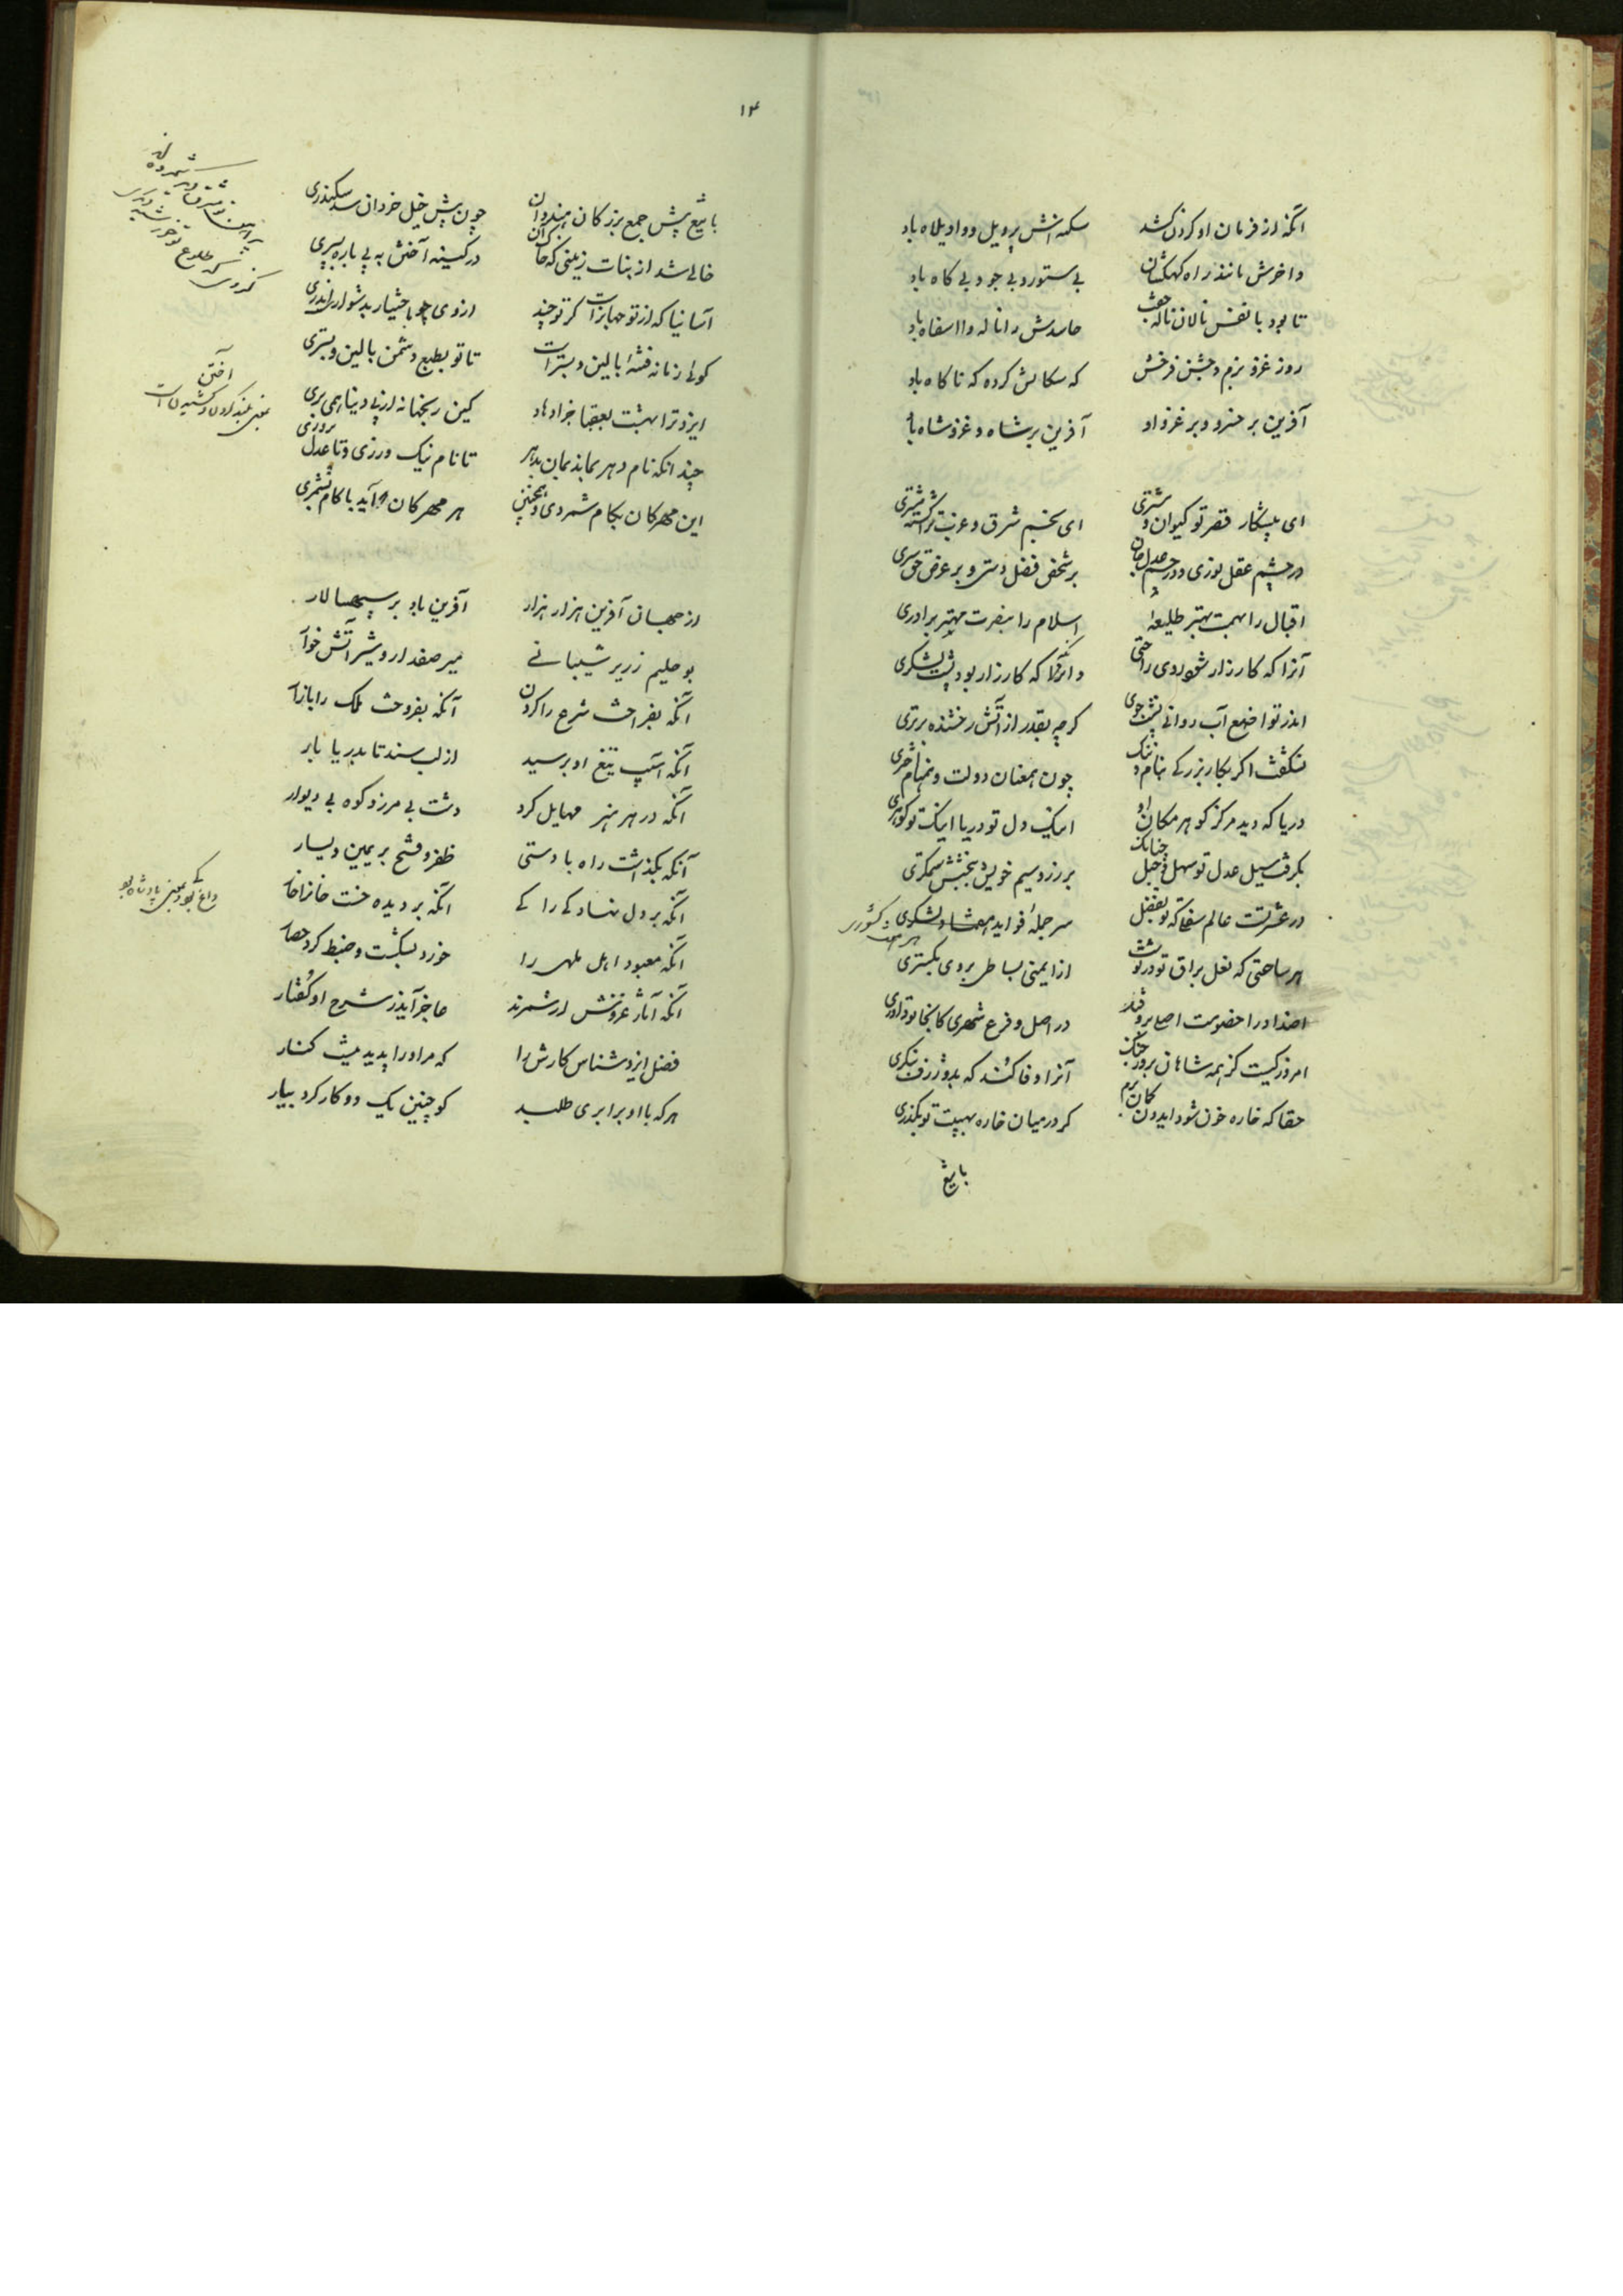 آنکه از فرمان او گردن کشد سکه انش پرویل و واویلاه باد
واخرش مانند راه کهکشان بی ستور و بی جو و بی کاه باد
تا بود با نفس نالان ناله جفت حاسدش را ناله وا اسفاه باد
روز غزو بزم و جشن فرخش که سکالش کرده که ناکاه باد
آفرین بر خسرو و بر غزو او آفرین بر شاه و غزو شاه باد
ای پیشکار قصر تو کیوان و مشتری ای بخم شرق و غرب ترا گشته مشتری
در چشم عقل نوری و در جسم عدل جان بر شخص فضل دستی و بر عرض حق سری
اقبال را بهمت بهتر طلیعهٔ اسلام را بنصرت مهتر برادری
آنرا که کارزار شود روی راحتی وانرا که کارزار بود پشت لشکری
اندر تواضع آب روانی پشت جوی کرچه بقدر از آتش رخشنده برتری
نشکفت اکر بکار بزرکی بنام و ننک چون همعنان دولت و همنام
دریا که دید مرکز کوهر مکان او اینک دل تو دریا اینک تو کوهری
بکرفت سیل عدل تو سهل و جبل چنانک بر زر و سیم خویش ببخشش ستمکری
در عشرتست عالم سفلی که تو بفضل سر جملهٔ فواید لشکری
هر کشوری
هر ساحتی که نعل براق تو در نوشت از ایمنی بساط بر وی بکستری
اضداد را خصومت اصلی برو فتد در اصل و فرع شهری کانجا تو داوری
امروز کیست کز همه شاهان بروز جنگ آنرا وفا کند که بدو ژرف بنکری
حقا که خاره خون شود ایدون کمان برم کر در میان خاره بهیبت تو بکذری
با تیغ
۱۴
با تیغ پیش جمع بزرکان هندوان چون پیش خیل خردان سد سکندری
خالی شد از بنات زمینی که خاک آن در کینه آختن به پی باره بسپری
آسانیا که از تو جهانراست کر تو چند از وی چو باختیار بدشوار اندری
کوئی زمانه فتنه بالین و بستر است تا تو بطبع دشمن بالین و بستری
ایزد ترا بهشت بعقبا جزا دهاد کین رنجها نه از پی دنیا همی بری
چندانکه نام دهر بماند بمان بدهر تا نام نیک ورزی و تا عدل پروری
این مهرکان بکام شمردی و همچنین هر مهرکان که آید با کام بشمری
از جهان آفرین هزار هزار آفرین باد بر سپهسالار
بو حلیم زریر شیبانی میر صفدار و شیر آتش خوار
آنکه بفراخت شرع را کردن آنکه بفروخت ملک را بازار
آنکه آسیب تیغ او برسید از لب سند تا بدریا بار
آنکه در هر هنر مهایل کرد دشت بی مرز و کوه بی دیوار
آنکه بکذاشت راه بادستی ظفر و فتح بر یمین و یسار
آنکه بر دل نهاد کی را کی آنکه بر دیده خست خانرا خار
آنکه معبود اهل ملهی را خورد بشکست و ضبط کرد حصار
آنکه آثار غزوش ار شمرند عاجز آیند ز شرح او کفتار
فضل ایزد شناس کارش را که مر او را پدید نیست کنار
هر که با او برابری طلبد کو چنین یک دو کار کرد بیار
آختن
بمعنی بلند کردن و کشیدن است
داغ کی کبود بمعنی پادشاه بود